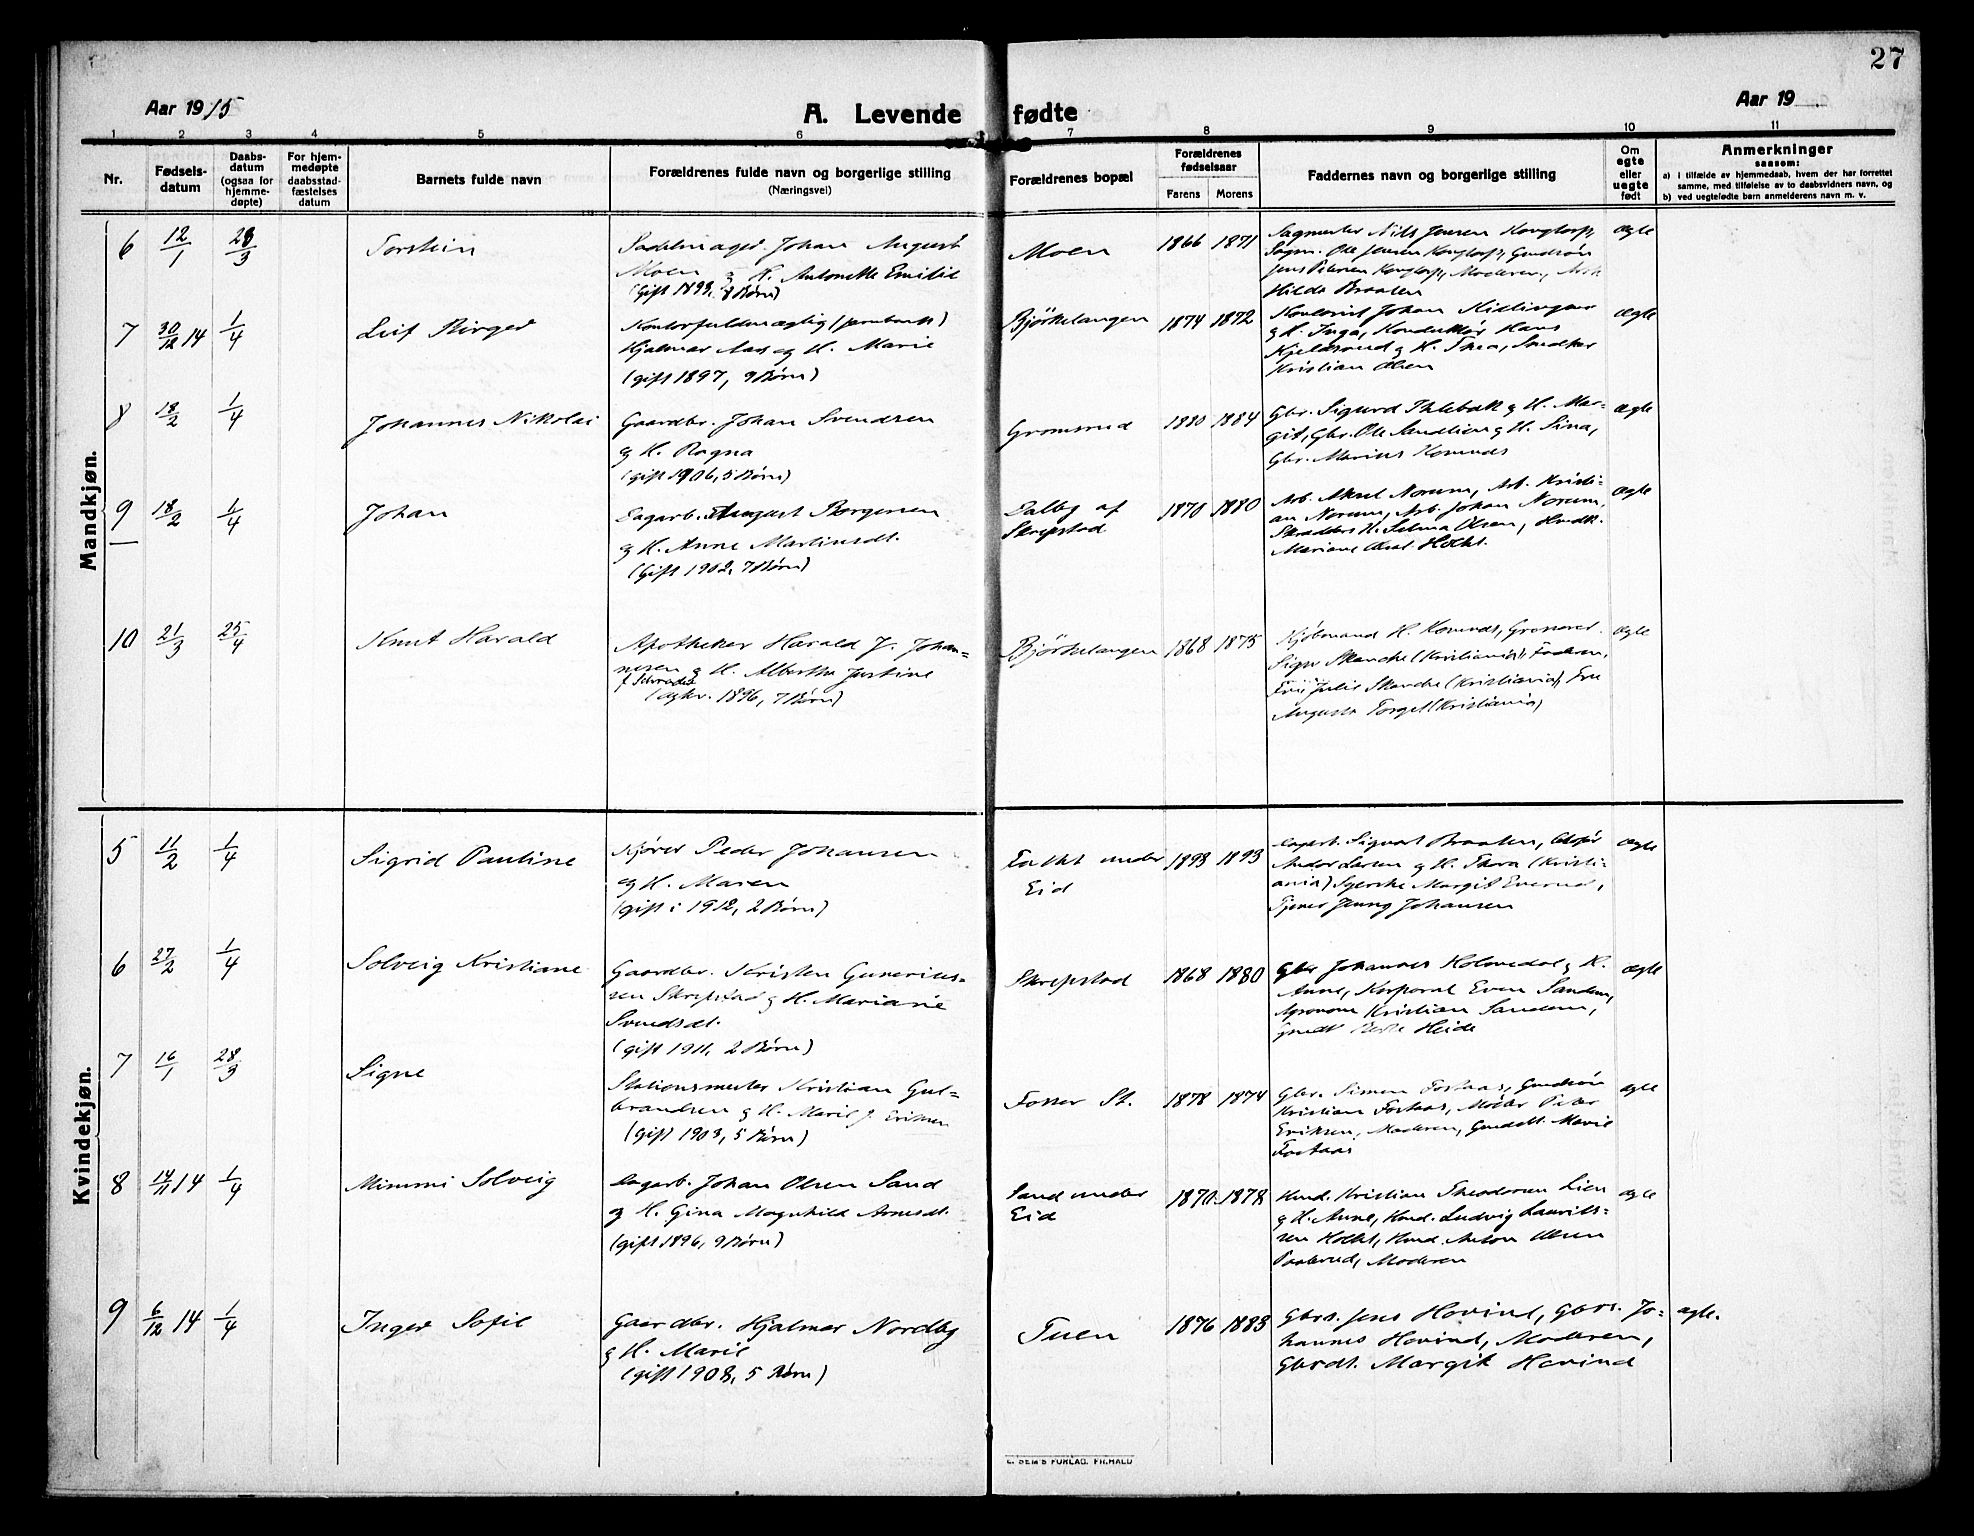 27
Aar 1915
A. Levende fødte
Aar 19
1 2 3 4 5 6 7 8 9 10 11
Nr.
Fødsels-
datum
Daabs-
datum
(ogsaa for
hjemme-
døpte)
For hjem-
medøpte
daabsstad-
fæstelses
datum
Barnets fulde navn
Forældrenes fulde navn og borgerlige stilling
(Næringsvei)
Forældrenes bopæl
Forældrenes
fødselsaar
Farens Morens
Faddernes navn og borgerlige stilling
Om
egte
eller
uegte
født
Anmerkninger
saasom:
a) I tilfælde av hjemmedaab, hvem der har forrettet
samme, med tilføielse av to daabsvidners navn, og
b) ved uegtefødte barn anmelderens navn m. v.
Mandkjøn.
6 12/1 28/3 Torstein
Sadelmager Johan August
Moen og H. Antonette Emilie
(Gift 1893, 8 Børn)
Moen 1866 1871
Sagmester Nils Jensen
Ole Jensen Gmdsøn
Jens Petersen Moderen, Arb.
Hilda Braaten
ægte
7 30/12 14 1/4 Leif Birger
Kontorfuldmægtig
Hjalmar Aas og H. Marie
(gift 1897, 9 Børn)
Bjørkelangen 1874 1872
Johan
og H. Inga, Konduktør Hans
og H. Thea, Snedker
Kristian Olsen
ægte
8 18/2 1/4 Johannes Nikolai
Gaardbr. Johan Svendsen
og H. Ragna
(gift 1906, 5 Børn)
Gromsrud 1880 1884
Gbr. Sigurd Ihlebæk og H. Mar-
git, Gbr. Ole Sandlien og H. Sina,
Gbr. Marius Komnæs
ægte
9 18/2 1/4 Johan
Dagarb. August Borgersen
og H. Anne Martinsdt.
(Gift 1902, 7 Børn)
Dalby af
Skrepstad
1870 1880
Arb. Aksel Norum, Arb. Kristi-
an Norum, Arb. Johan Norum,
H. Selma Olsen,
Mariane
ægte
10 21/3 25/4 Knut Harald
Apotheker Harald J. Johan-
nesen og H. Albertha Justine
f. Schrøder
(ægtv. 1896, 7 Børn)
Bjørkelangen 1868 1875
Kjøbmand H. Komnæs, Grosserer
Skanche (Kristiania), Faderen,
Frk. Julie Skanche (Kristiania), Fru
Augusta Torget (Kristiania)
ægte
Kvindekjøn.
5 11/2 1/4 Sigrid Pauline
Kjører Peder Johansen
og H. Maren
(gift i 1912, 2 Børn)
under
Eid
1893 1893
Dagarb. Sigvart Braaten,
Andor Larsen og H. Thora (Kristi-
ania) Syerske Margit Everud,
Tjener Jenny Johansen
ægte
6 27/2 1/4 Solveig Kristiane
Gaardbr. Kristen Gunerius-
sen Skrepstad og H. Mariane
Svendsdt.
(gift 1911, 2 Børn)
Skrepstad 1868 1880
Gbr Johannes Holmedal og H.
Anne, Korporal Even Sandem,
Agronom Kristian Sandem,
Heide
ægte
7 16/1 28/3 Signe
Stationsmester Kristian Gul-
brandsen og H. Marie J. Eriksen
(gift 1903, 5 Børn)
Fosser St. 1878 1874
Gbr. Simen Fostaas, Gmdsøn
Kristian Fostaas, Møller Peter
Eriksen, Moderen, Gmdsdt. Marie
Fostaas
ægte
8 14/11 14 1/4 Mimmi Solveig
Dagarb. Johan Olsen Sand
og H. Gina Magnhild Arnesdt.
(gift 1896, 9 Børn)
Sand under
Eid
1870 1878
Hmd. Kristian Theodorsen Lien
og H. Anne, Hmd. Ludvig Laurit-
sen Hmd. Anton Olsen
Moderen
ægte
9 6/12 14 1/4 Inger Sofie
Gaardbr. Hjalmar Nordby
og H. Marie
(gift 1908, 5 Børn)
Tuen 1876 1883
Gbrs. Jens Hovind, Gbrs. Jo-
hannes Hovind, Moderen,
Gbrdt. Margit Hovind
ægte.
E. SEM'S FORLAG, FR.HALD